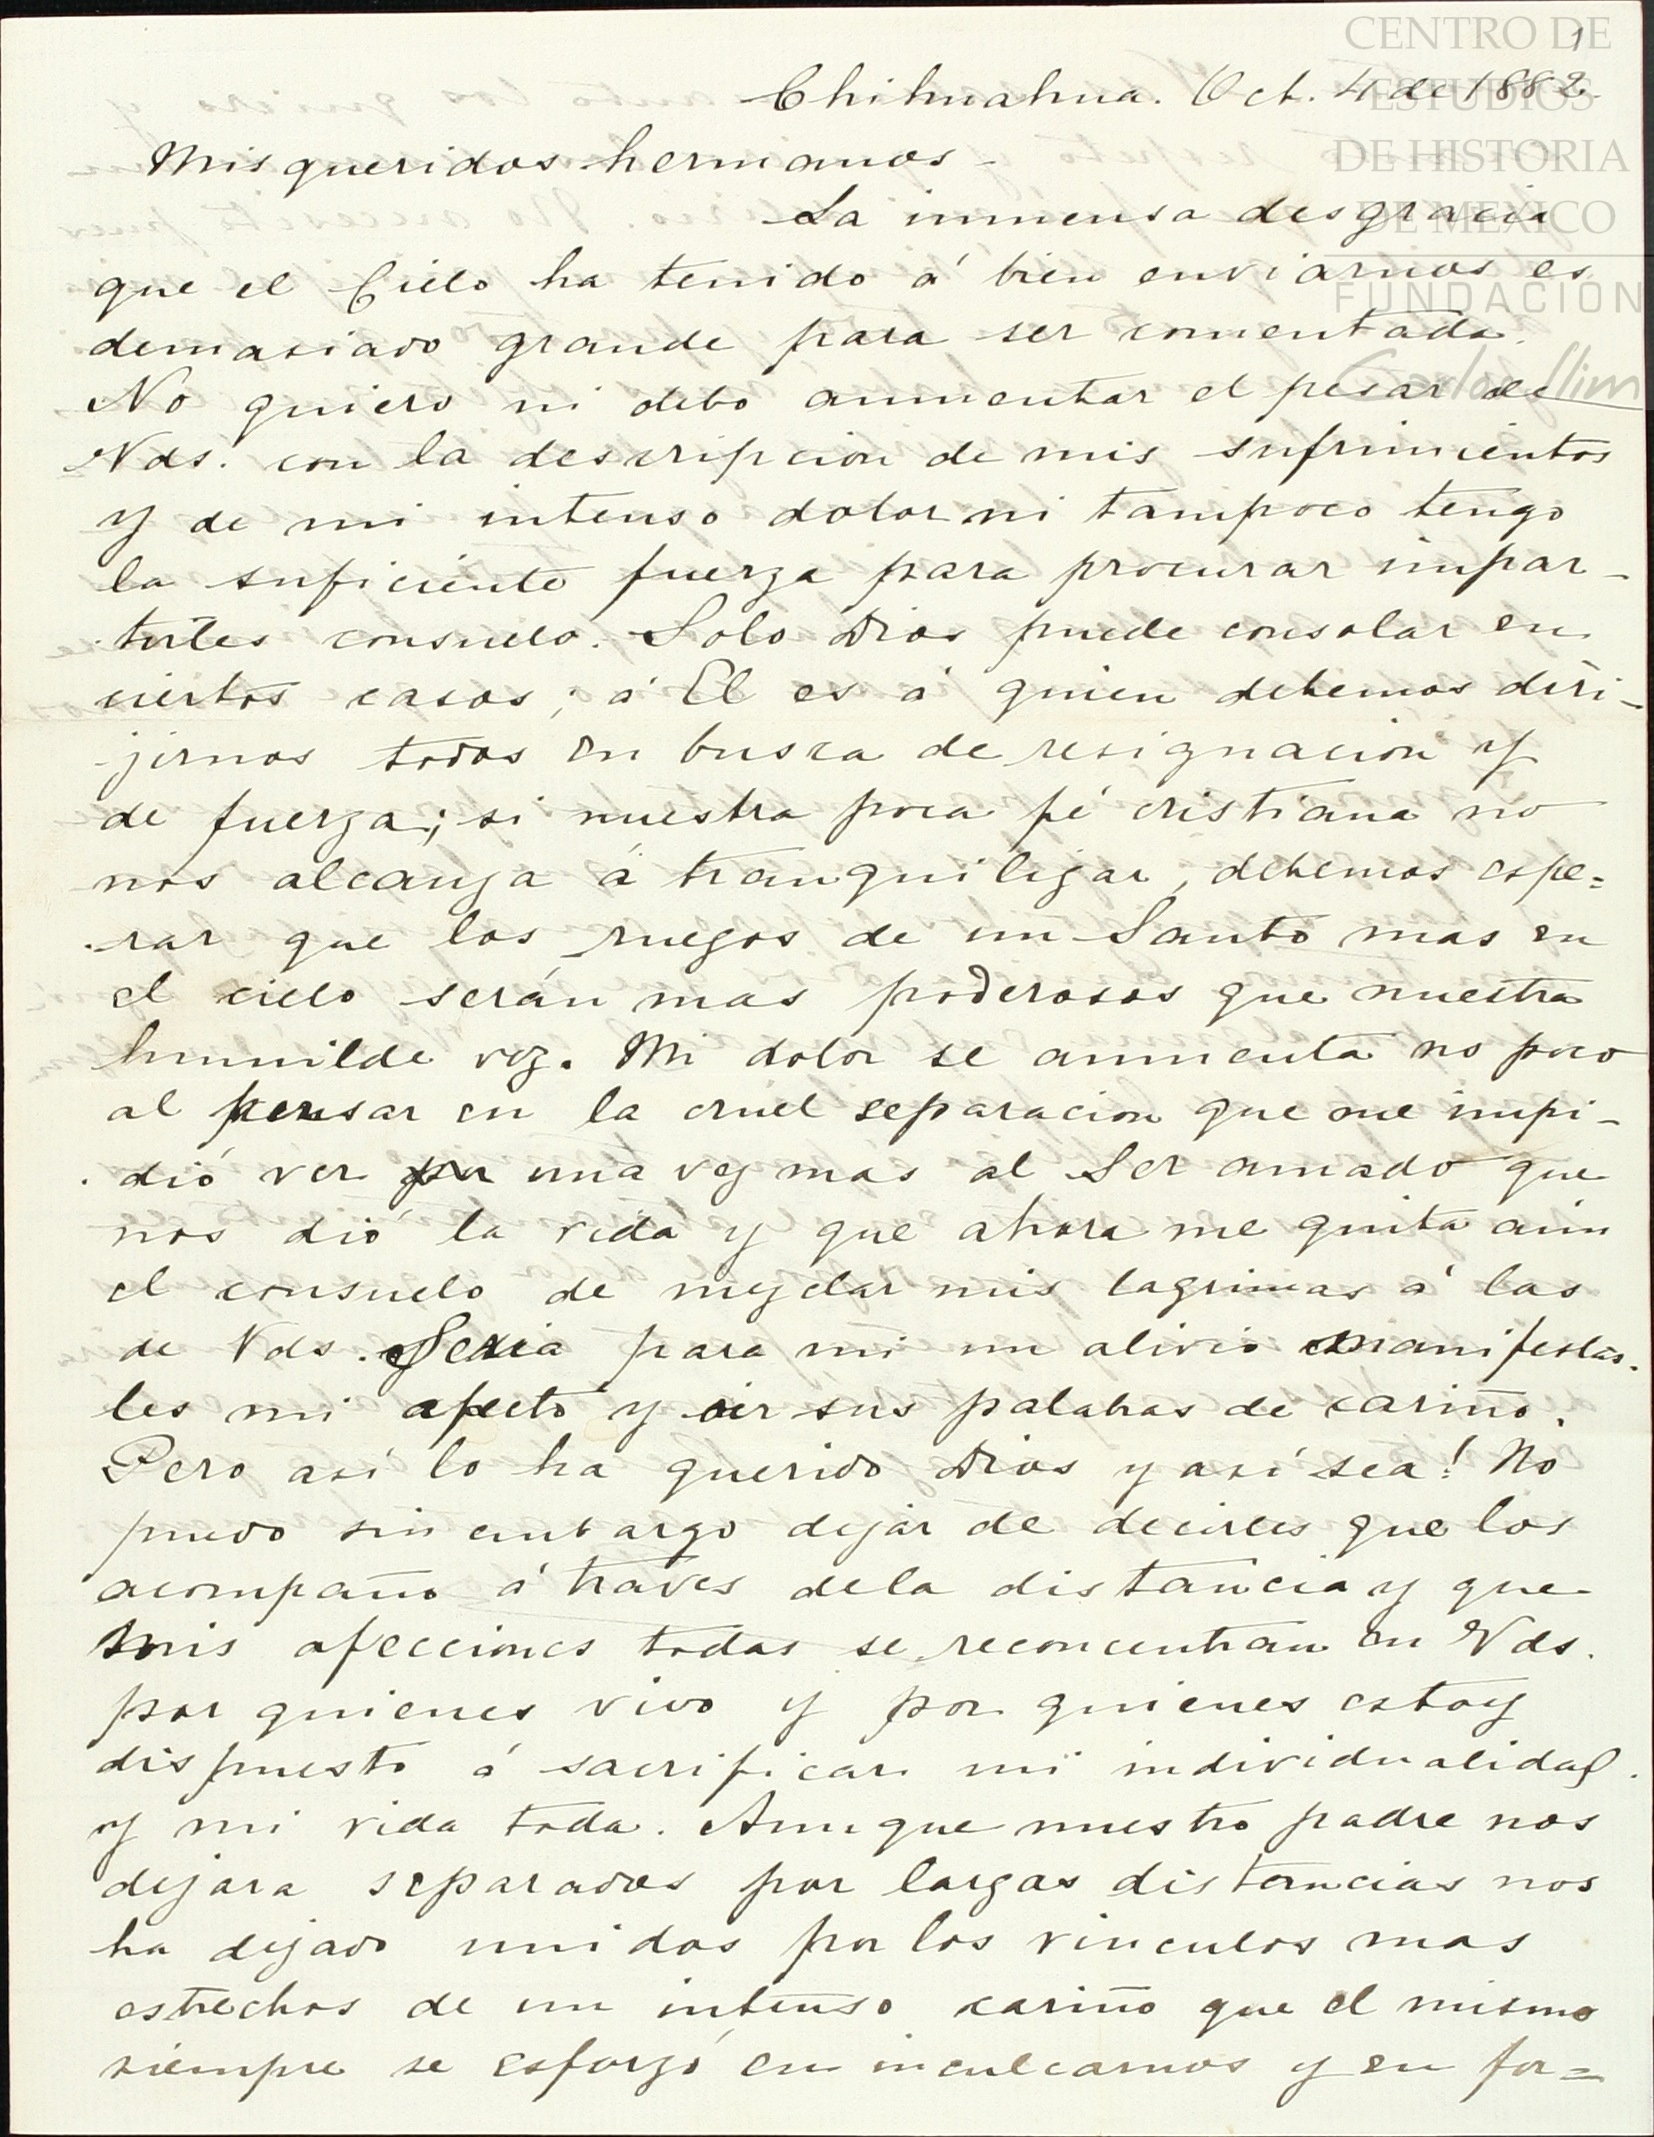 1
Chihuahua. Oct. 4 de 1882.
Mis queridos hermanos -
La inmensa desgracia
que el Cielo ha tenido á bien enviarnos es
demasiado grande para ser comentada.
No quiero ni debo aumentar el pesar de
Vds. con la descripcion de mis sufrimientos
y de mi intenso dolor ni tampoco tengo
la suficiente fuerza para procurar impar-
tirles consuelo. Solo Dios puede consolar en
ciertos casos; á El es á quien debemos diri-
jirnos todos en busca de resignacion y
de fuerza; si nuestra poca fé cristiana no
nos alcanza á tranquilizar, debemos espe=
rar que los ruegos de un Santo mas en
el cielo serán mas poderosos que nuestra
humilde voz. Mi dolor se aumenta no poco
al pensar en la cruel separacion que me impi-
dió ver por una vez mas al Ser amado que
nos dió la vida y que ahora me quita aún
el consuelo de mezclar mis lagrimas á las
de Vds. Seria para mi un alivio manifestar-
les mi afecto y oir sus palabras de cariño.
Pero así lo ha querido Dios y así sea! No
puedo sin embargo dejar de decirles que los
acompaño á través de la distancia y que
mis afecciones todas se reconcentran en Vds.
por quienes vivo y por quienes estoy
dispuesto á sacrificar mi individualidad
y mi vida toda. Aunque nuestro padre nos
dejara separados por largas distancias nos
ha dejado unidos por los vinculos mas
estrechos de un intenso cariño que el mismo
siempre se esforzó en inculcarnos y en for=
CENTRO DE
ESTUDIOS
DE HISTORIA
DE MÉXICO
FUNDACIÓN
Carlos Slim